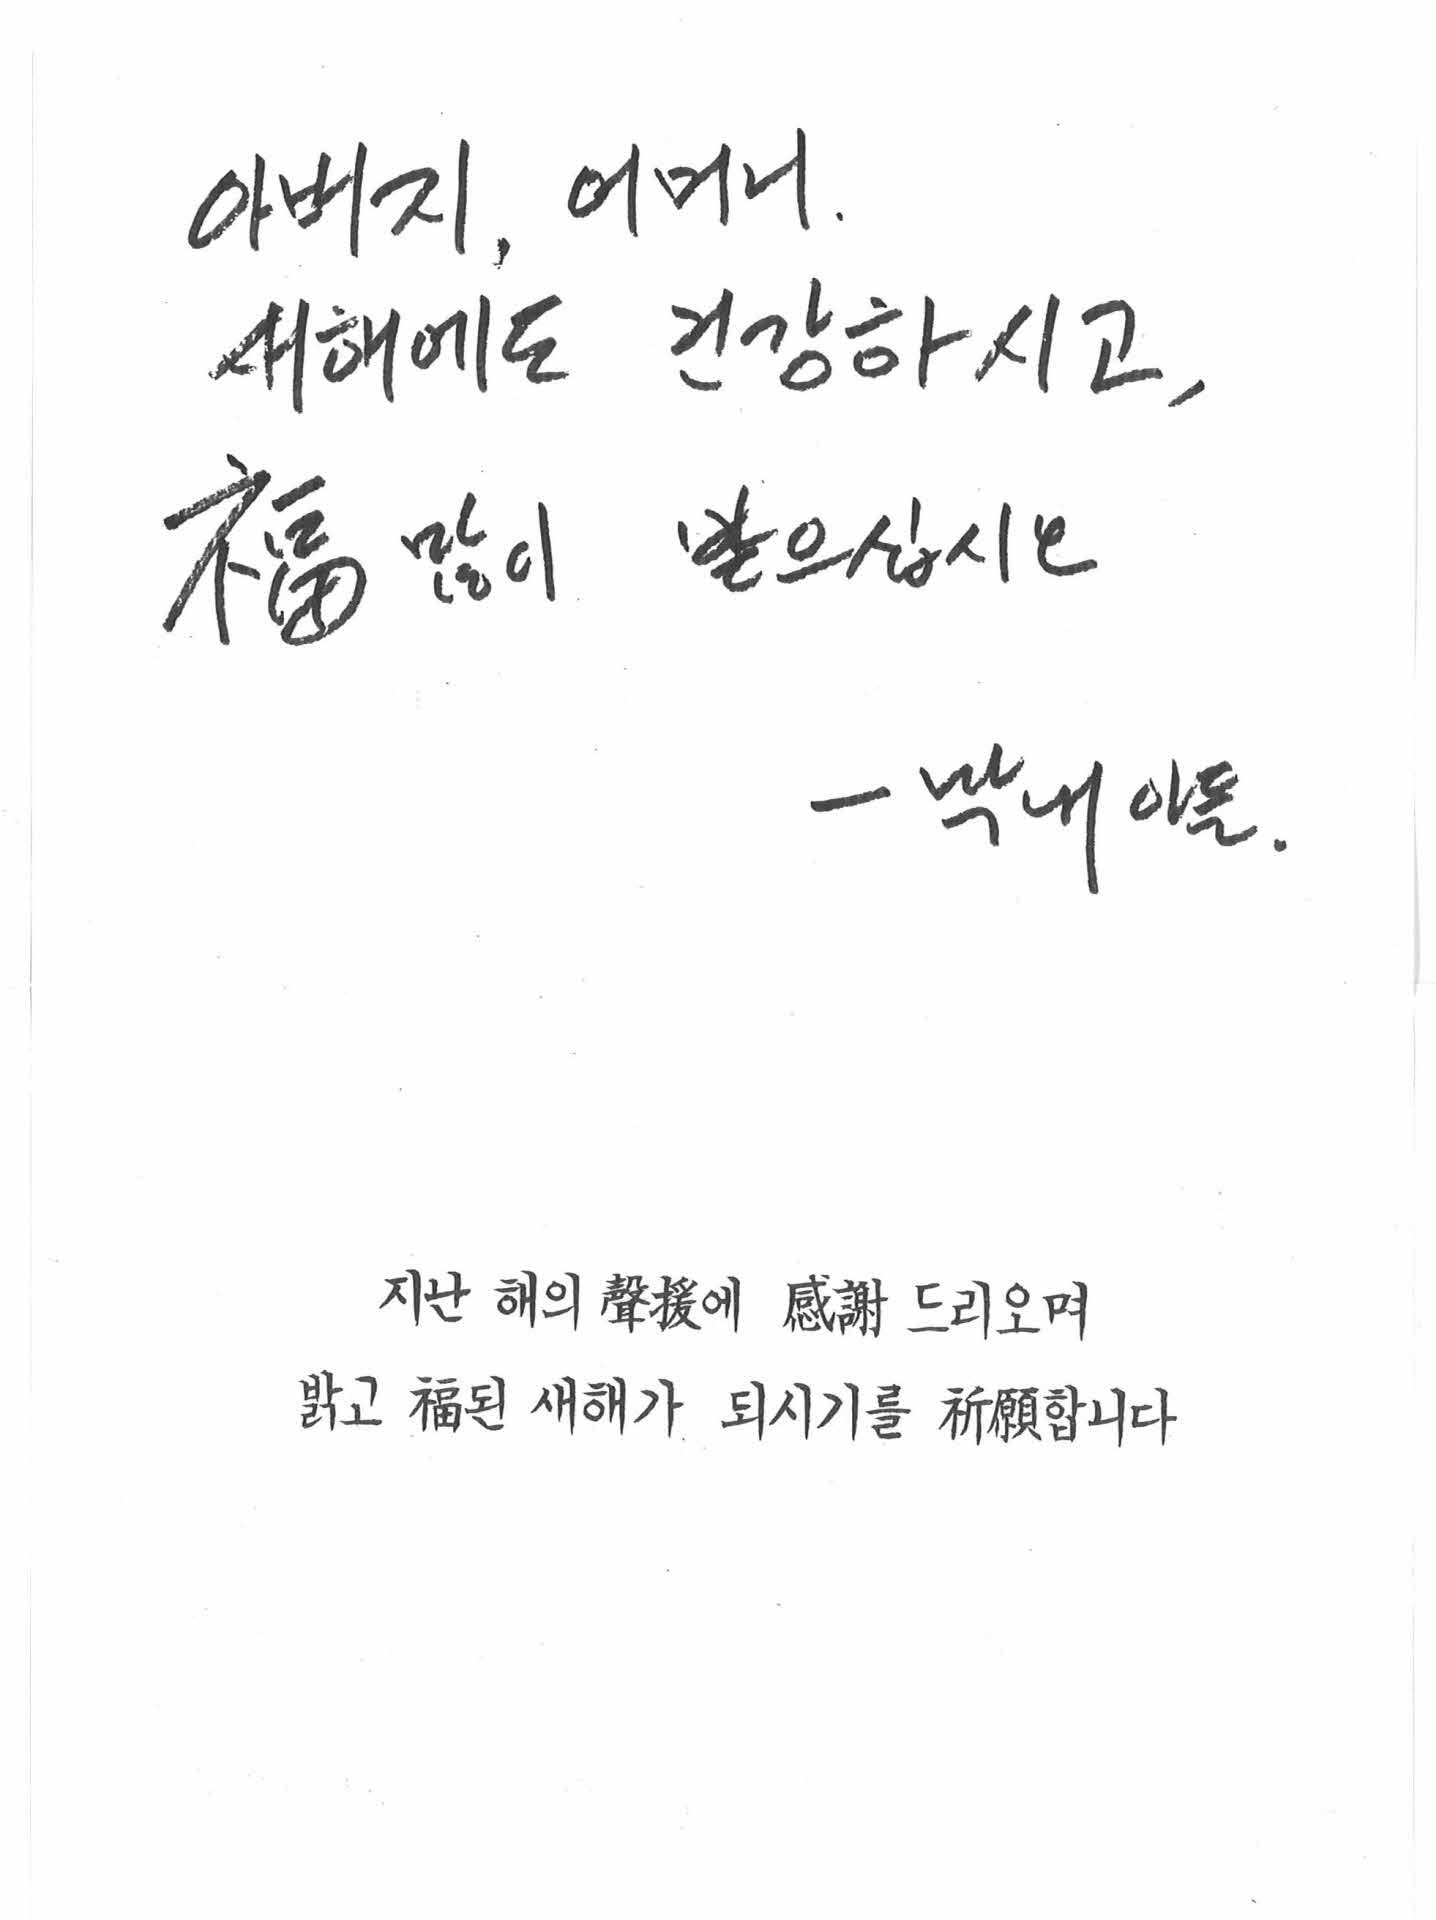 아버지, 어머니.
새해에도 건강하시고,
福 많이 받으십시오
- 막내 아들.
지난 해의 聲援에 感謝 드리오며
밝고 福된 새해가 되시기를 祈願합니다